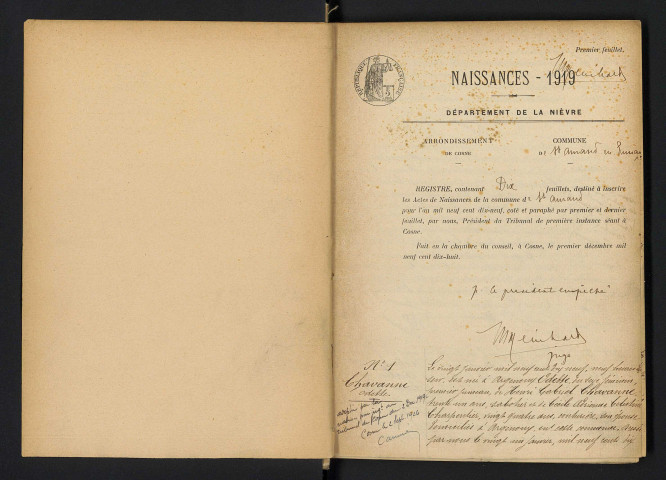 Premier feuillet,
Meinhard
RÉPUBLIQUE FRANÇAISE
NAISSANCES - 1919
DÉPARTEMENT DE LA NIÈVRE
ARRONDISSEMENT
DE COSNE
COMMUNE
DE St Amand en Puisaye
REGISTRE, contenant Dix feuillets, destiné à inscrire
les Actes de Naissances de la commune de St Amand
pour l'an mil neuf cent dix-neuf, coté et paraphé par premier et dernier
feuillet, par nous, Président du Tribunal de première instance séant à
Cosne.
Fait en la chambre du conseil, à Cosne, le premier décembre mil
neuf cent dix-huit.
p. le président empêché
Meinhard
juge
N° 1
Chavanne
Odette
Le vingt janvier mil neuf cent dix neuf, neuf heures
soir, est née à Argenou Odette, du sexe féminin,
de Henri Gabriel Chavanne
trente un ans, et de
Charpentier, vingt quatre ans, son épouse
domiciliés à Argenou, en cette commune.
le vingt un janvier, mil neuf cent dix